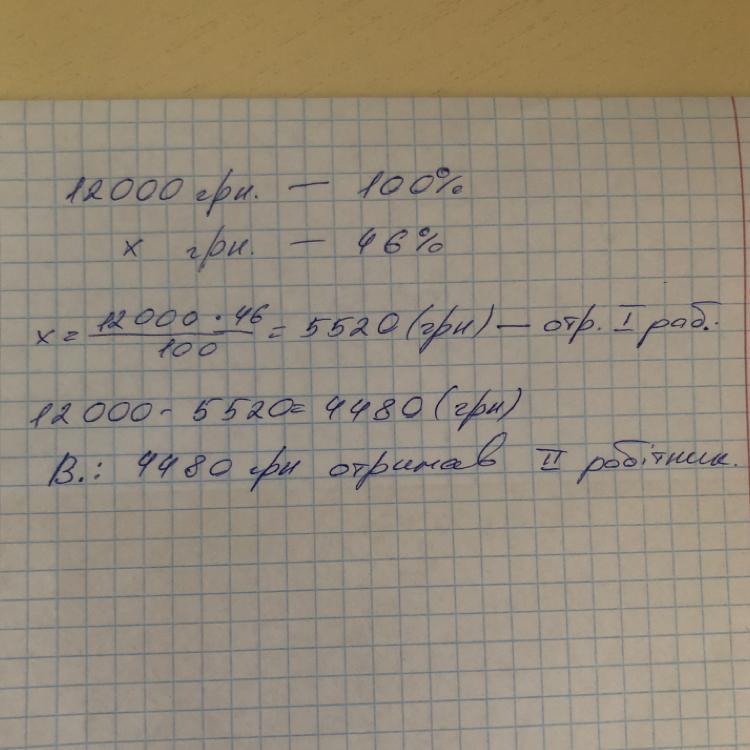 12000 грн. — 100%
х грн. — 46%
х = 12000 · 46 / 100 = 5520 (грн) — отр. I раб.
12000 - 5520 = 4480 (грн)
В.: 4480 грн отримав II робітник.